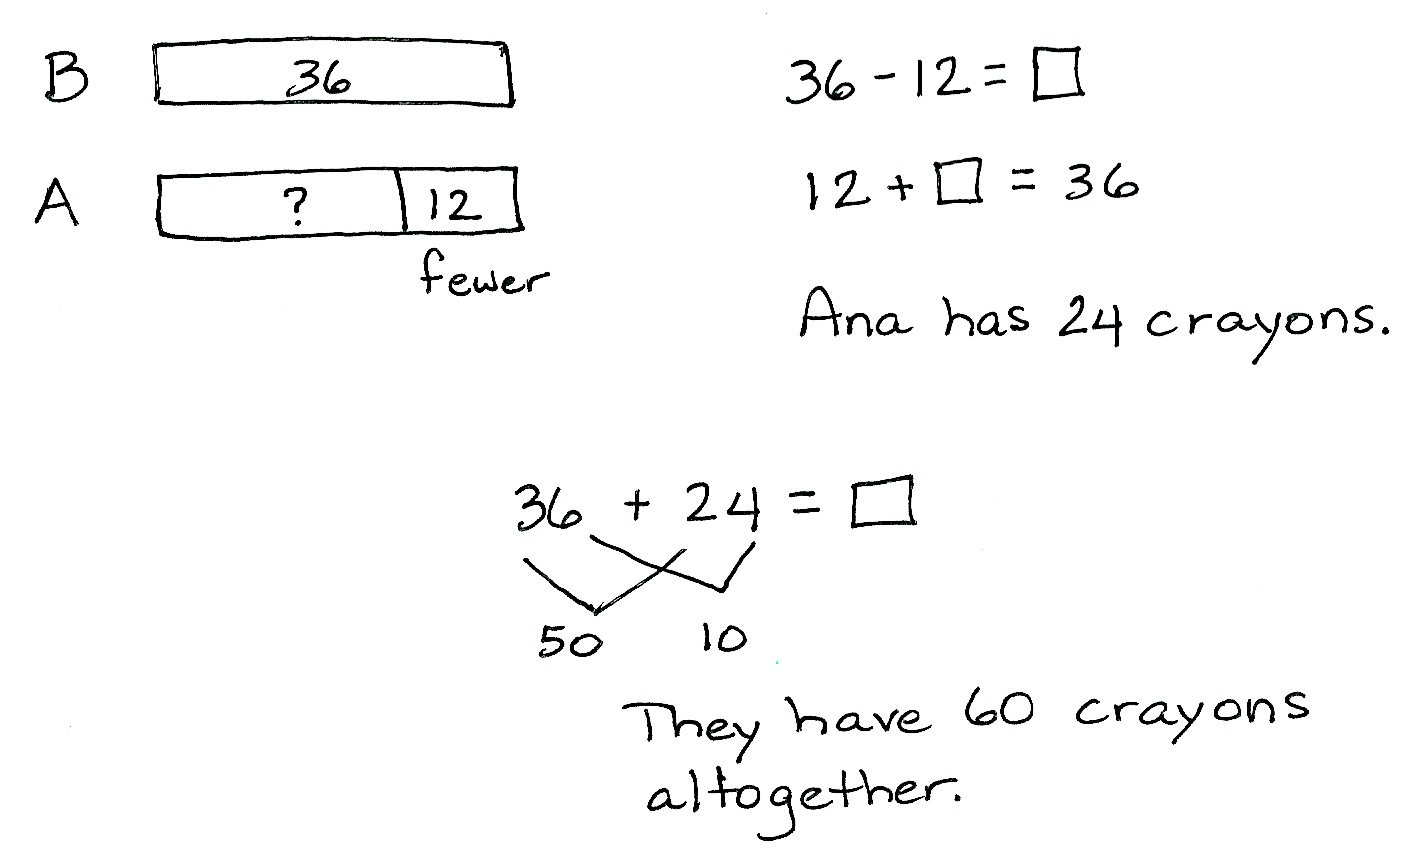 B 36
36 - 12 = □
A ? 12
fewer
12 + □ = 36
Ana has 24 crayons.
36 + 24 = □
50 10
They have 60 crayons
altogether.